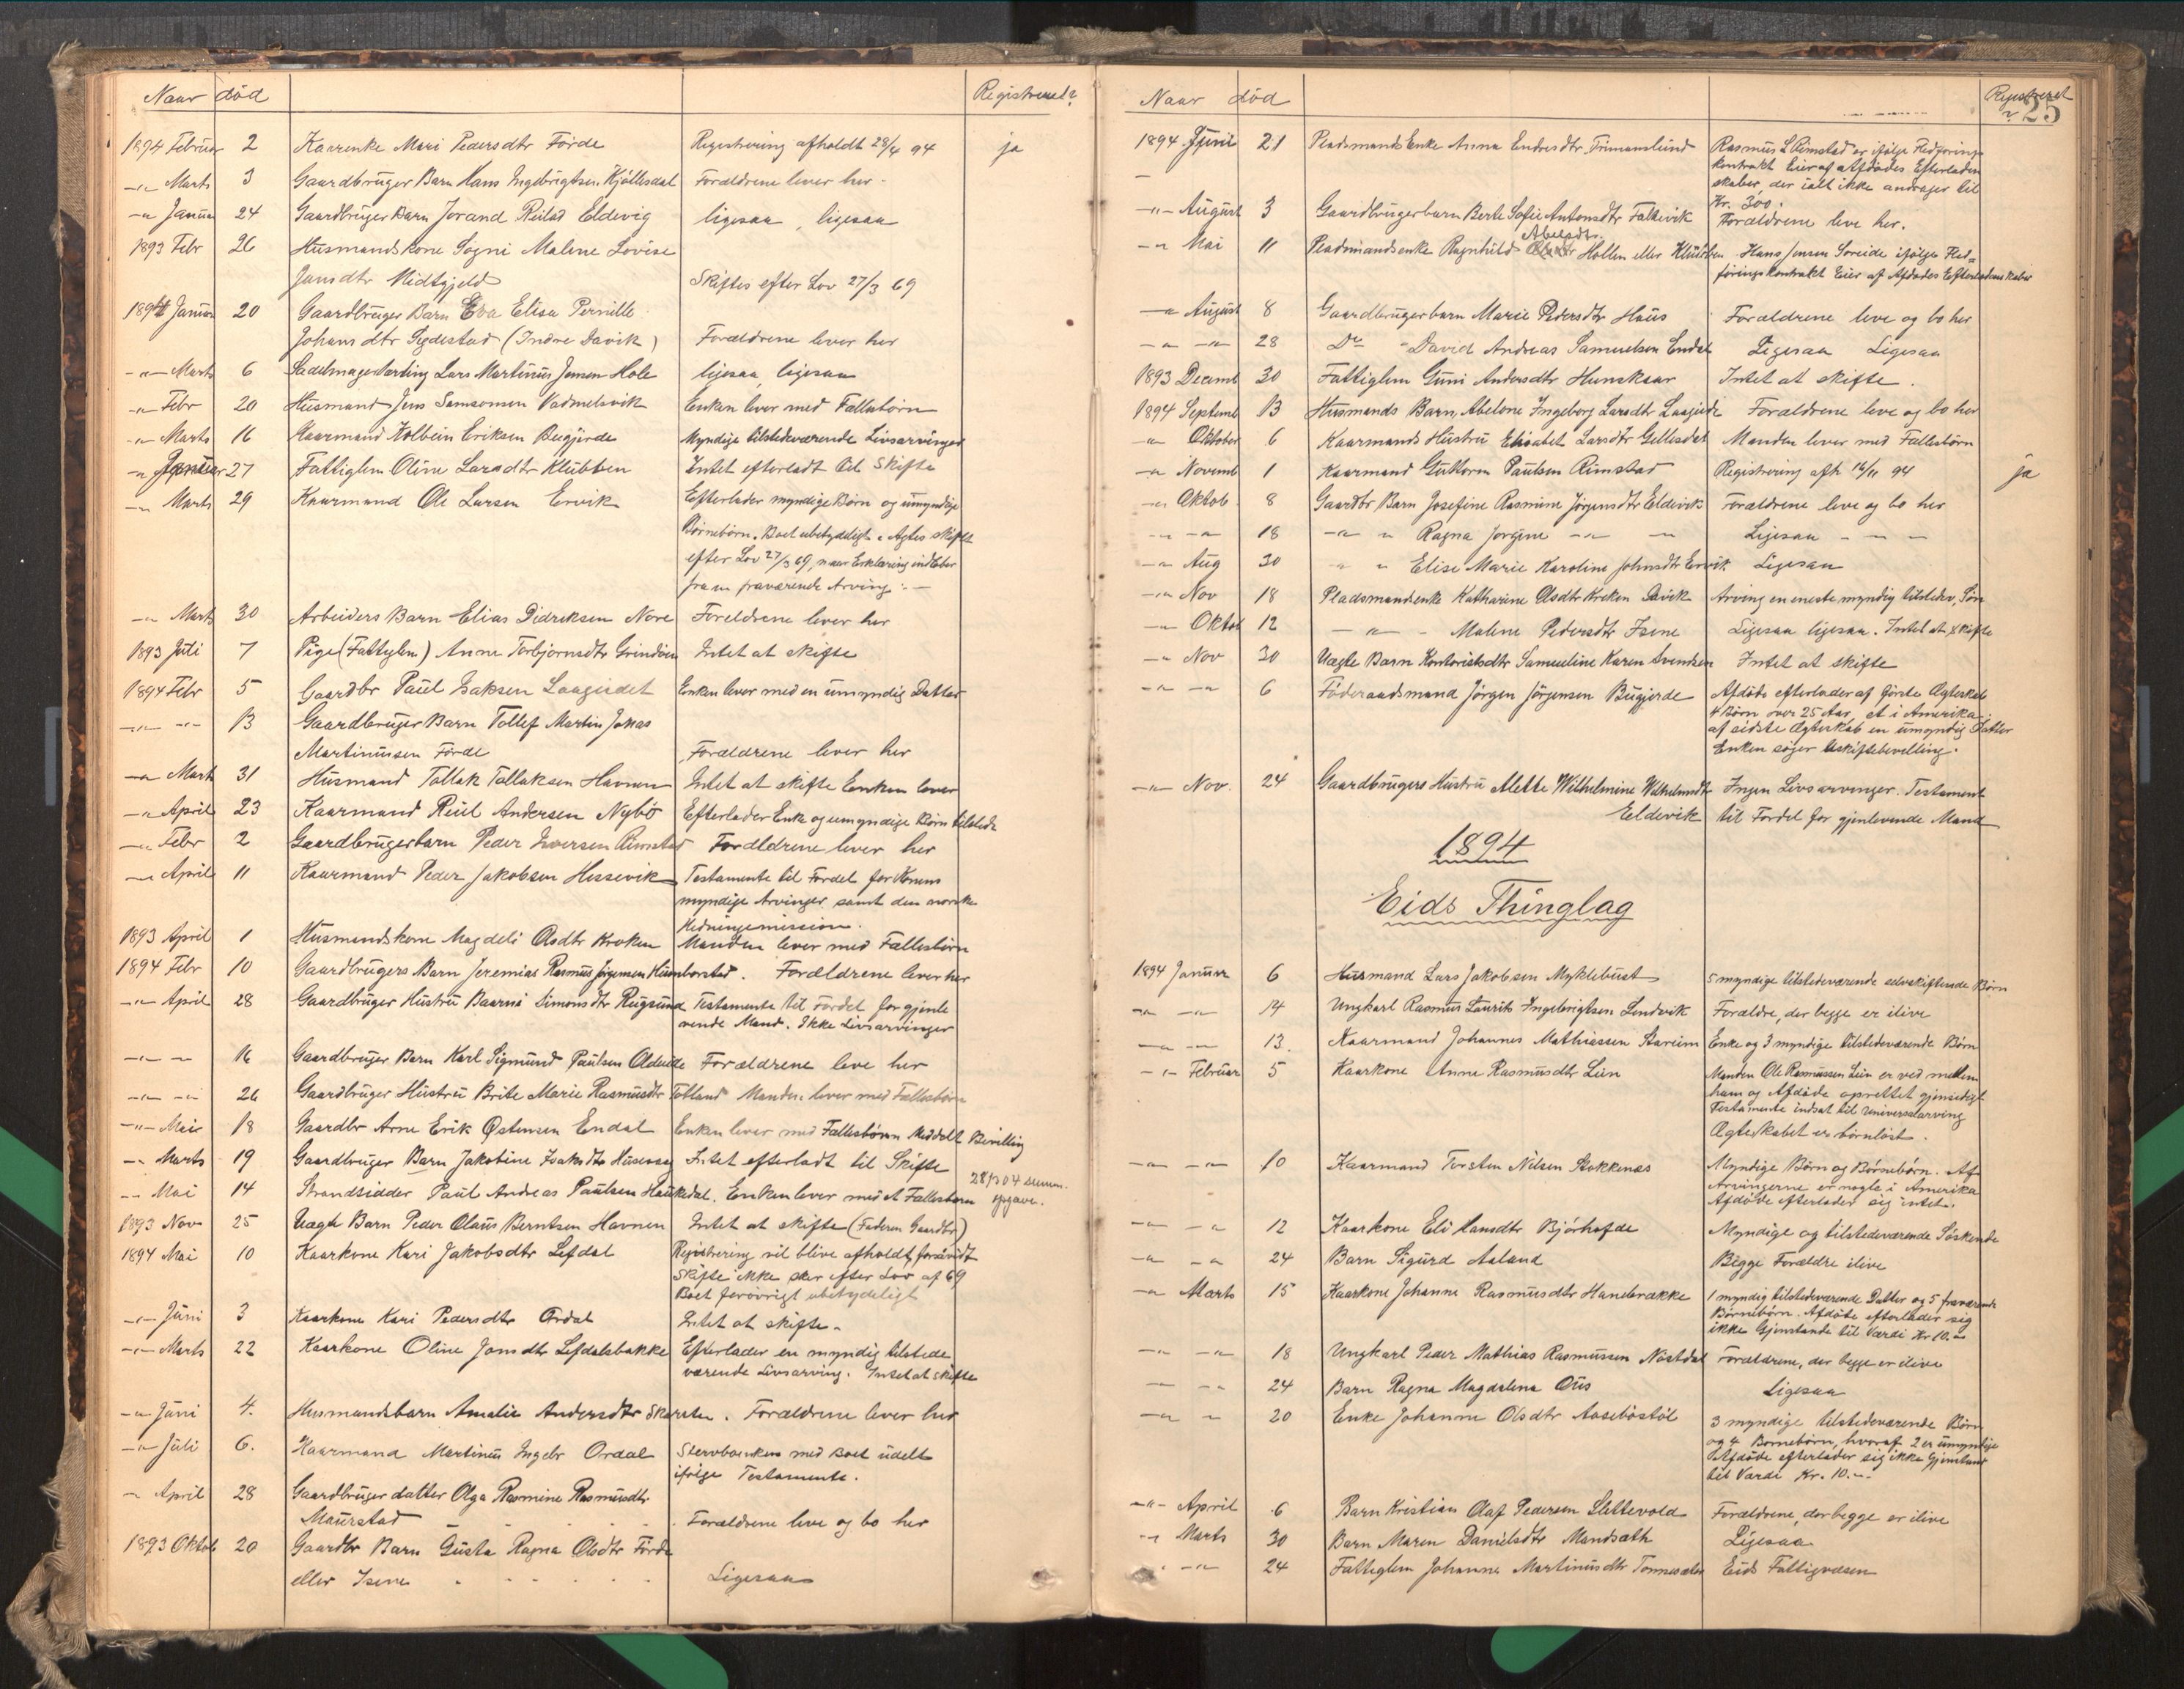 Naar død Registreret?
1894 Februar 2 Kaarenke Mari Pedersdtr Förde Registrering afholdt 28/4 94 ja
-"- Marts 3 Gaardbruger Barn Hans Ingebrigtsen Kjöllesdal Forældrene lever her.
-"- Januar 24 Gaardbruger Barn Jorand Eldevig ligesaa, ligesaa
1893 Febr 26 Husmandskone Sogni Malene Lovise
Jansdtr Midtgjeld Skiftes efter Lov 27/3 69
1894 Januar 20 Gaardbruger Barn Eva Elisa Pernille
Johansdtr Sydestad (Indre Davik) Forældrene lever her
-"- Marts 6 Sadelmagerlærling Lars Martinus Jensen Hole ligesaa, ligesaa
-"- Febr 20 Husmand Jens Samsonsen Vadmelsvik Enken lever med Fællesbörn
-"- Marts 16 Kaarmand Kolbein Eriksen Bugjerde Myndige tilstedeværende Livsarvinger
-"- Januar 27 Fattiglem Oline Larsdtr Klubben Intet efterladt til Skifte
-"- Marts 29 Kaarmand Ole Larsen Ervik Efterlader myndige Börn og umyndige
Börnebörn. Boet ubetydeligt. Agtes skiftet
efter Lov 27/3 69, naar Erklæring indlöber
fra en fraværende Arving.-
-"- Marts 30 Arbeiders Barn Elias Didriksen Nore Foreldrene lever her
1893 Juli 7 Pige (Fattiglem) Anne Torbjornsdtr Grindöen Intet at skifte
1894 Febr 5 Gaardbr Paul Isaksen Laagiedet Enken lever med en umyndig Datter
-"- -"- 13 Gaardbruger Barn Tollef Martin Jonas
Martinussen Förde Forældrene lever her
-"- Marts 31 Husmand Tollak Tollaksen Havnen Intet at skifte Enken lever
-"- April 23 Kaarmand Reiel Andersen Nybö Efterlader Enke og umyndige Börn tilstede
-"- Febr 2 Gaardbrugerbarn Peder Iversen Rimstad Forældrene lever her
-"- April 11 Kaarmand Peder Jakobsen Hessevik Testamente til Fordel for Konens
myndige Arvinger samt den norske
Hedningemission.
1893 April 1 Husmandskone Magdeli Olsdtr Kroken Manden lever med Fællesbörn
1894 Febr 10 Gaardbrugers Barn Jeremias Rasmus Jörgensen Humborstad. Forældrene lever her
-"- April 28 Gaardbruger Hustru Baarni Simonsdtr Rugsund Testamente til Fordel for gjenle
vende Mand. Ikke Livsarvinger
-"- -"- 16 Gaardbruger Barn Karl Sigmund Paulsen Oldeide Forældrene leve her
-"- -"- 26 Gaardbruger Hustru Brite Marie Rasmusdtr Totland Manden lever med Fællesbörn
-"- Mai 18 Gaardbr Arne Erik Østensen Endal Enken lever med Fællesbörn Meddelt Bevilling
-"- Marts 19 Gaardbruger Barn Jakobine Isaksdtr Husevaag Intet efterladt til Skifte
-"- Mai 14 Strandsidder Paul Andreas Paulsen Haukedal. Enken lever med et Fællesbarn opgave.
1893 Nov 25 Uægte Barn Peder Olaus Berntsen Havnen Intet at skifte (Faderen Gaardbr)
1894 Mai 10 Kaarkone Kari Jakobsdtr Lefdal Registrering vil blive afholdt, forsaavidt
Skifte ikke sker efter Lov af 69
Boet forövrigt ubetydeligt
-"- Juni 3 Kaarkone Kari Pedersdtr Ordal Intet at skifte.
-"- Marts 22 Kaarkone Oline Jonsdtr Lefdalsbakke Efterlader en myndig tilstede
værende Livsarving. Intet at skifte
-"- Juni 4. Husmandsbarn Amalie Andersdtr Skorsten. Forældrene lever her
-"- Juli 6. Kaarmand Martinus Ingebr Ordal Stervboenken med Boet udelt
ifølge Testamente.
-"- April 28 Gaardbruger datter Olga Rasmine Rasmusdtr
Maurstad Forældrene leve og bo her
1893 Oktob 20 Gaardbr Barn Gusta Ragna Olsdtr Förde
eller Isene Ligesaa
Naar død Registreret? 25
1894 Juni 21 Pladsmands Enke Anna Endresdtr Trimanslund Rasmus L Rimstad er ifølge Fledförings
kontrakt Eier af Afdödes Efterladen
skaber, der ialt ikke andrager til
Kr. 300.
-"- August 3 Gaardbrugerbarn Berte Sofie Antonsdtr Falkevik Forældrene leve her.
-"- Mai 11 Pladsmandsenke Ragnhild Abelsdtr. Hollen eller Klubben Hans Jensen Soreide ifölge Fled=
föringskontrakt Eier af Afdödes Efterladenskaber
-"- August 8 Gaardbrugerbarn Marie Pedersdtr Haus Forældrene leve og bo her
-"- -"- 28 Do David Andreas Samuelsen Endal Ligesaa Ligesaa
1893 Decemb 30 Fattiglem Guni Andersdtr Hunskaar Intet at skifte.
1894 Septemb 13 Husmands Barn Abelone Ingeborg Larsdtr Laagiede Forældrene leve og bo her
-"- Oktober 6 Kaarmands Hustru Elisabet Larsdtr Gillesdal Manden lever med Fællesbörn
-"- Novemb 1 Kaarmand Guttorm Paulsen Rimstad Registrering afh 14/11 94 ja
-"- Oktob 8 Gaardbr Barn Josefine Rasmine Jörgensdtr Eldevik Forældrene leve og bo her
-"- -"- 18 -"- " Ragna Jorgine -"- " Ligesaa - " - "
-"- Aug 30 " " Elise Marie Karoline Johnsdtr Ervik Ligesaa
-"- Nov 18 Pladsmandsenke Katharine Olsdtr Kroken Davik Arving en eneste myndig tilstedev. Sön
-"- Oktob 12 -"- - Malene Pedersdtr Isene Ligesaa ligesaa. Intet at skifte
-"- Nov 30 Uægte Barn Kontoristsdtr Samueline Karen Svendsen Intet at skifte
-"- -"- 6 Föderaadsmand Jörgen Jörgensen Bugjerde Afdöde efterlader af förste Ægteskab
4 Börn over 25 Aar, et i Amerika;
af sidste Ægteskab en umyndig Datter
Enken söger Uskiftebevilling.
-"- Nov. 24 Gaardbrugers Hustru Alette Wilhelmine Wilhelmsdtr Ingen Livsarvinger. Testament
Eldevik til Fordel for gjenlevende Mand
1894
Eids Thinglag
1894 Januar 6 Husmand Lars Jakobsen Myklebust 5 myndige tilstedeværende selvskiftende Börn
-"- -"- 14 Ungkarl Rasmus Laurits Ingebrigtsen Lendvik Forældre, der begge er ilive
-"- -"- 13. Kaarmand Johannes Mathiassen Starheim Enke og 3 myndige tilstedeværende Börn
-"- Februar 5 Kaarkone Anne Rasmusdtr Lien Manden Ole Rasmussen Lien er ved mellem
ham og Afdöde oprettet gjensidigt
Testamente indsat til Universalarving
Ægteskabet er börnlöst.
-"- -"- 10 Kaarmand Torsten Nilsen Stokkenæs Myndige Börn og Börnebörn. Af
Arvingerne er nogle i Amerika
Afdöde efterlader sig intet.
-"- -"- 12 Kaarkone Eli Hansdtr Bjórhofde Myndige og tilstedeværende Söskende
-"- -"- 24 Barn Sigurd Aaland Begge Forældre ilive
-"- Marts 15 Kaarkone Johanne Rasmusdtr Hanebrække 1 myndig tilstedeværende Datter og 5 fraværende
Börnebörn. Afdöde efterlader sig
ikke Gjenstande til Værdi Kr 10.-
-"- -"- 18 Ungkarl Peder Mathias Rasmussen Nöstdal Forældrene, der begge er ilive
-"- -"- 24 Barn Ragna Magdalena Öus Ligesaa
-"- " 20 Enke Johanne Olsdtr Aaseböstöl 3 myndige tilstedeværende Börn
og 4 Börnebörn, hvoraf 2 er umyndige
Afdöde efterlader sig ikke Gjenstand
til Værdi Kr. 10.-
-"- April 6 Barn Kristian Olaf Pedersen Slettevold Forældrene, der begge er ilive
-"- Marts 30 Barn Maren Danielsdtr Mandsæth Ligesaa
" -"- 24 Fattiglem Johanne Martinusdtr Eids Fattigvæsen